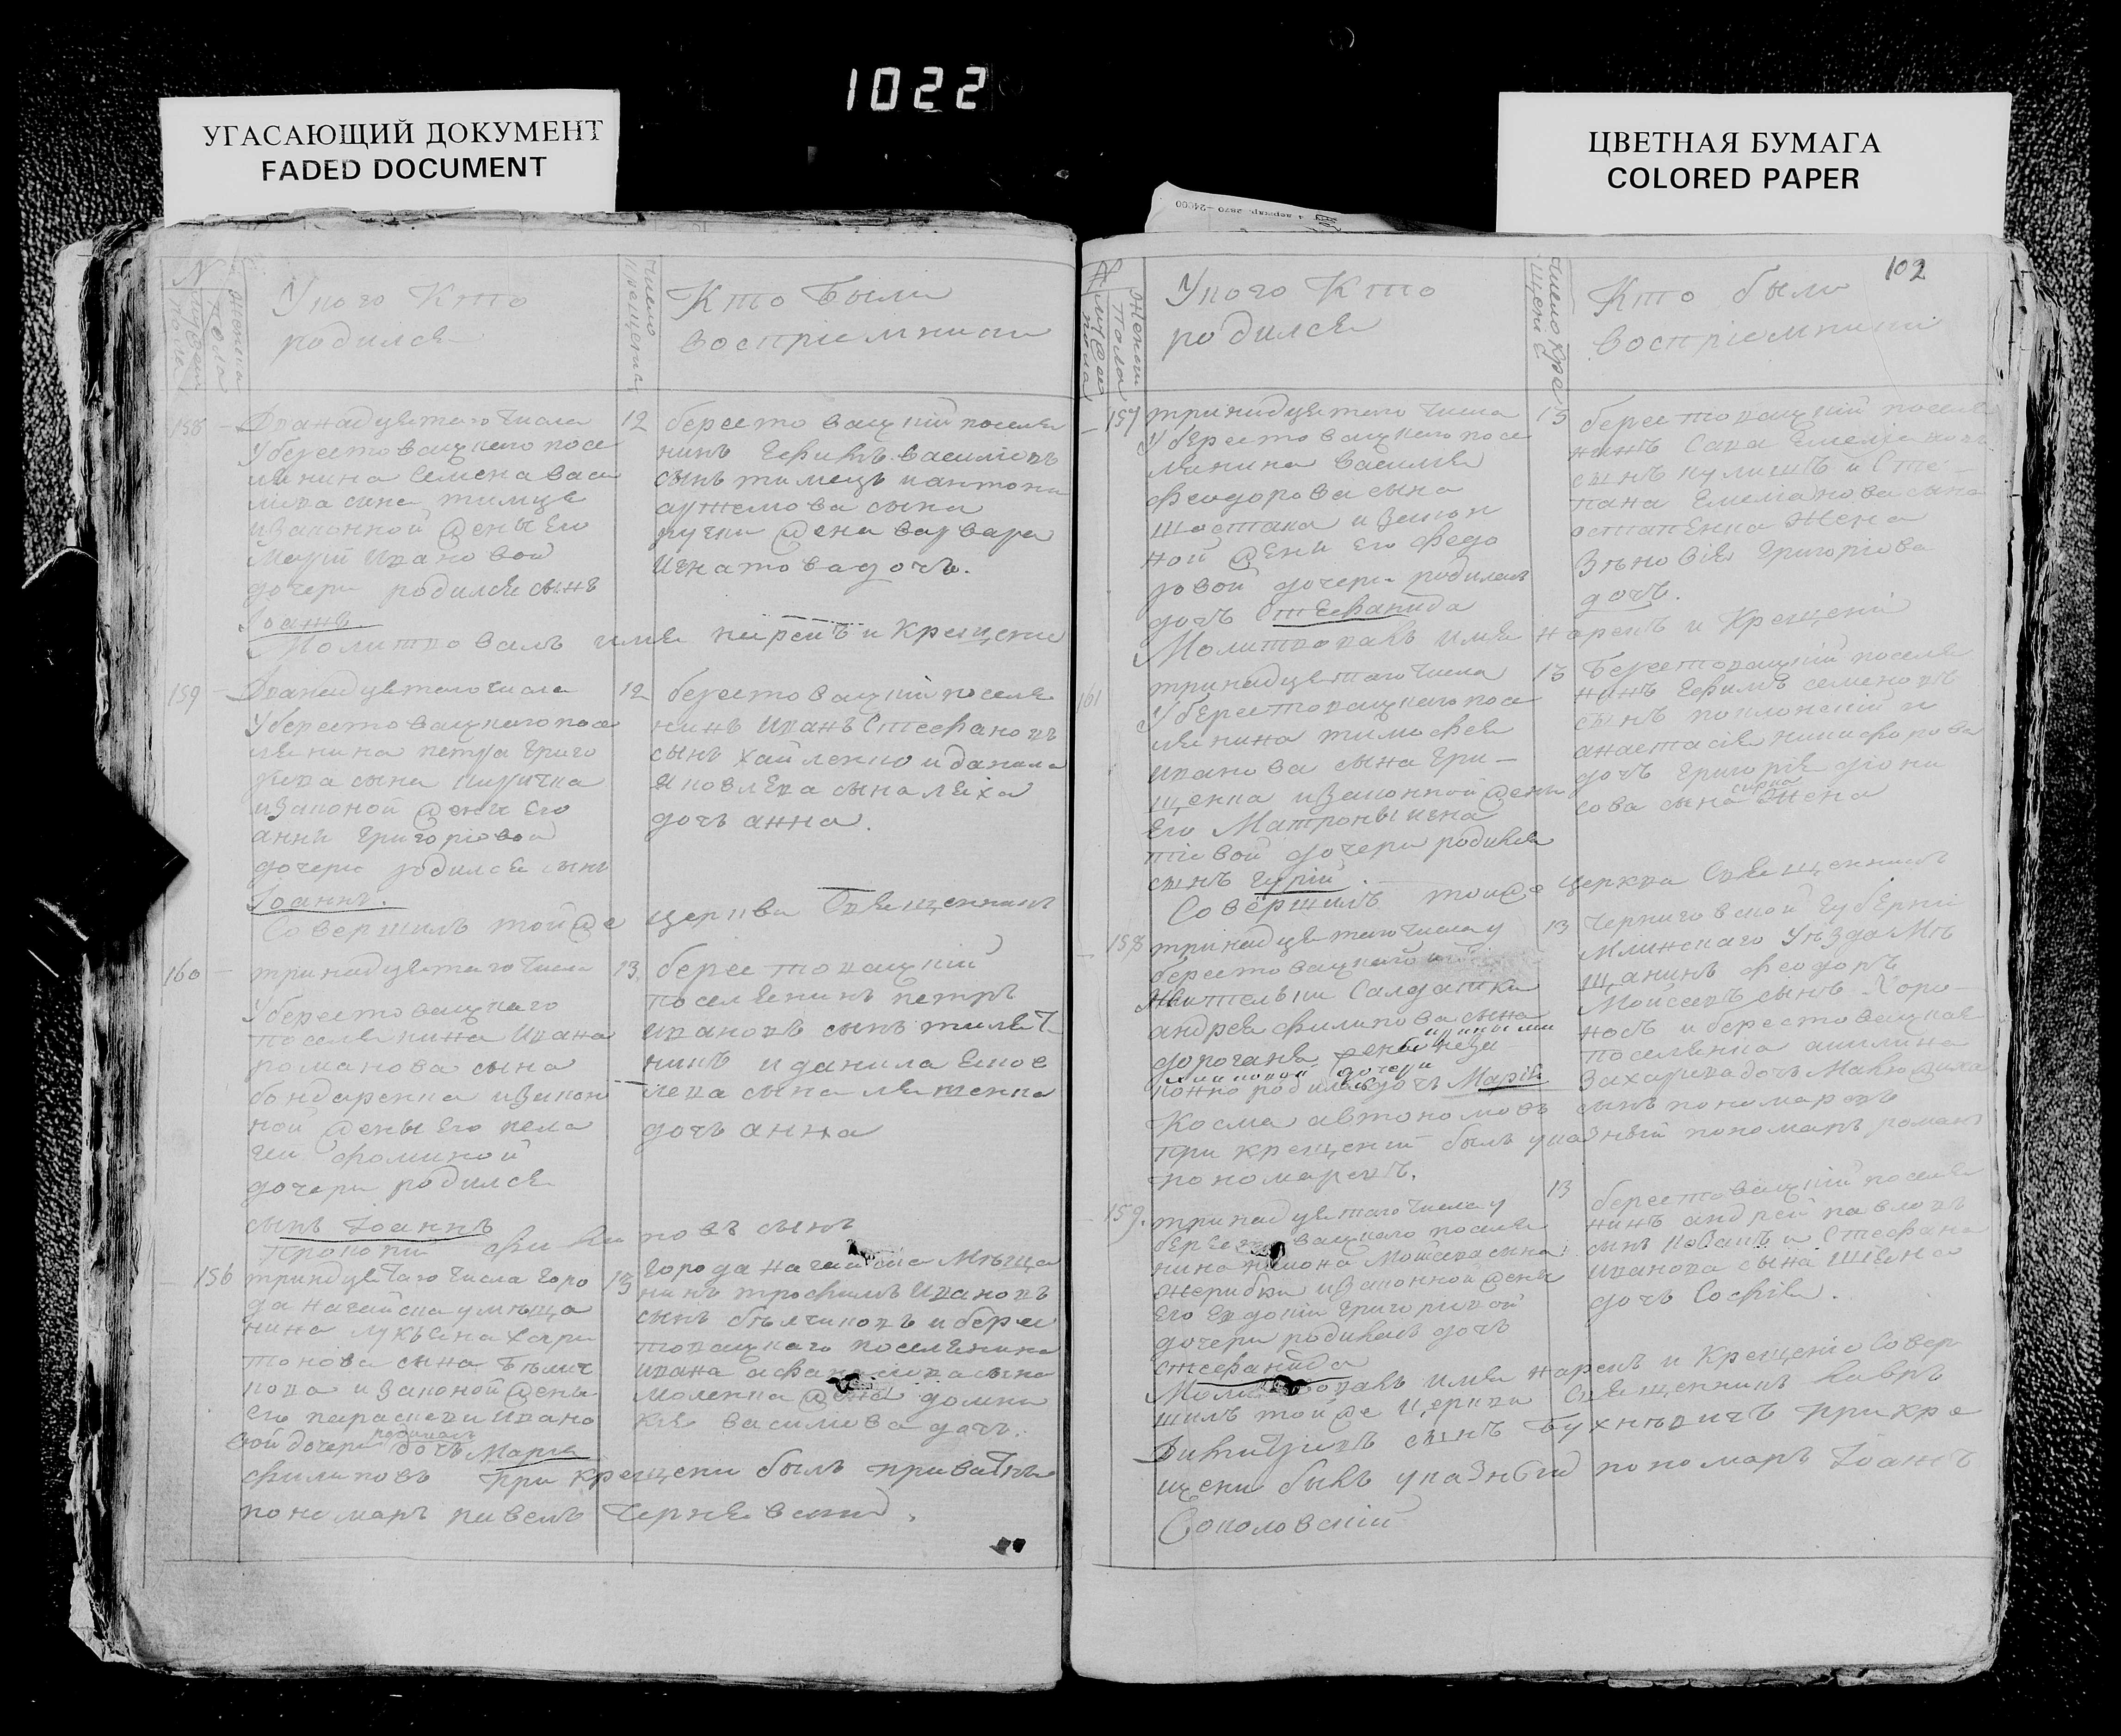 1022
УГАСАЮЩИЙ ДОКУМЕНТ
FADED DOCUMENT
ЦВЕТНАЯ БУМАГА
COLORED PAPER
N
Мужеска пола
Женска пола
Укого Кто
родился
число крещения
Кто были
восприемники
158
Дванадцятаго числа
Уберестовацкаго посе
лянина Семена Васи
лієва сына
изаконной жены Его
Марій Ивановой
дочери родился сынъ
Іоаннъ.
12
берестовацкій поселя
нинъ Ефимъ василіевъ
сынъ тимецъ и антона
артемова сына
ручки жена варвара
Игнатова дочь.
Молитвовалъ имя нарекъ и Крещение
159
Дванадцятаго числа
Уберестовацкаго посе
лянина петра Григо
риева сына киричка
изаконой жены Его
анны Григоріевой
дочери родился сынъ
Іоаннъ.
12
берестовацкій поселя
нинъ Иванъ Стефановъ
сынъ хайленко и данила
Яковлева сына ляха
дочь анна.
Совершилъ тойже церкви Священникъ
160
тринадцятаго числа
Уберестовацкаго
поселянина Ивана
романова сына
бондаренка изакон
ной жены Его пела
геи фоминой
дочери родился
сынъ Іоаннъ
13
берестовацкій
поселянинъ петръ
ивановъ сынъ
и данила
сына ляшенка
дочь анна
Прокопій сынъ
156
тринадцятаго числа горо
да нагайска умѣща
нина лукьяна Хари
тонова сына Бѣлич
кова изаконой жены
Его параскеви Ивано
вой дочери родилась дочь Марія
13
города нагайска Мѣща
нинъ трофимъ Ивановъ
сынъ бѣлчиковъ и берес
товацкаго поселянина
ивана афанасіева сына
моленка жена домни
кія василиева дочь.
филиповъ При крещени былъ
пономаръ павелъ Чернявский.
102
N
Мужес пола
Женск пола
Укого Кто
родился
число кре
щенія
Кто были
восприемники
157
тринадцятаго числа
Уберестовацкаго посе
лянина Василія
феодорова сына
шостака изакон
ной жены Его федо
ровой дочери родилась
дочь Стефанида
13
берестовацкій поселя
нинъ Сава Емеліановъ
сынъ кулишъ и Сте-
пана Емеліанова сына
остапенка жена
Зѣновія Григоріева
дочь.
Молитвовалъ имя нарекъ и Крещеній
161
тринадцятаго числа
Уберестовацкаго посе
лянина тимофея
иванова сына Гри-
щенка изаконной жены
Его Матроны игна
тіевой дочери родился
сынъ Гурій.
13
Берестовацкій поселя
нинъ Ефимъ семеновъ
сынъ поклонскій и
анастасія никифорова
дочь Григорія діони
сова сына жена
Совершилъ тойже Церкви Священникъ
158
тринадцятаго числа у
берестовацкой
жительки Салдатки
андрея филипова сына
дороганя жены неза
конно родилась дочь Марія
13
Черниговской Губерній
Млинскаго Уѣзда Мѣ
щанинъ феодоръ
Мойсеевъ сынъ
и берестовацкая
поселянка акилина
Захариева дочь
Косма автономовъ сынъ пономаревъ
При крещеній былъ указный пономаръ романъ
пономаревъ.
159.
тринадцятаго числа у
берестовацкаго поселя
нина Мойсеева сына
жерибки изаконной жены
Его Евдокій Григоріевой
дочери родилась дочь
Стефанида
13
берестовацкій поселя
нинъ андрей павловъ
сынъ и Стефана
иванова сына
дочь Софія.
имя нарекъ и Крещеніе Совер
шилъ тойже церкви Священникъ Лавръ
Димитріевъ сынъ при кре
щени былъ указный пономаръ Іоаннъ
Соколовский